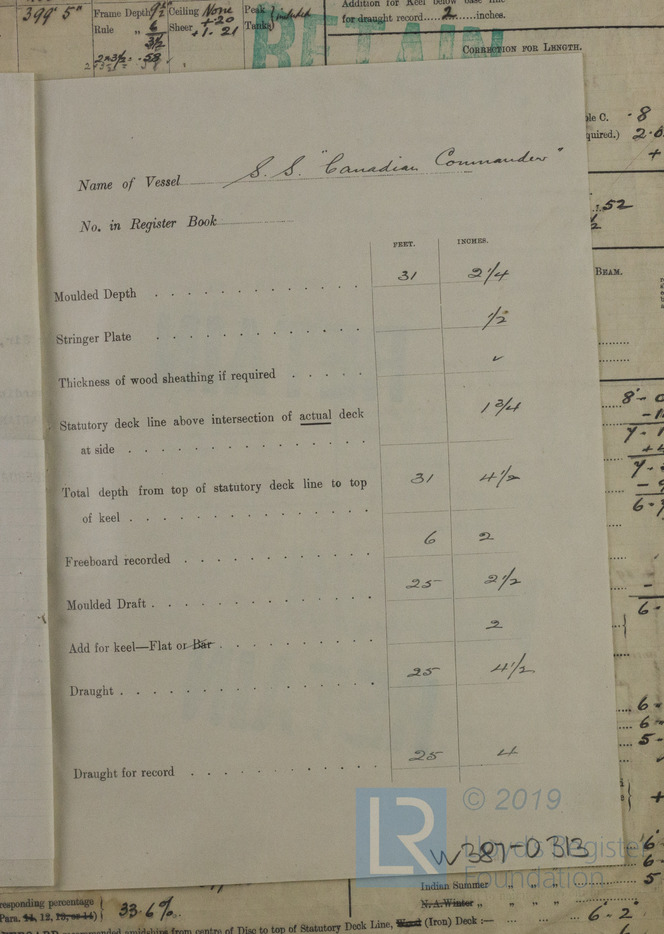 399' 5"
Frame Depth 9½
Rule „ 6
3½
Ceiling None
Sheer +.20
+1.21
Peak
Tanks
included
Addition for Keel below base line
for draught record.....2......inches.
RETAIN
CORRECTION FOR LENGTH.
ble C. .8
quired.)
.52
BEAM.
Name of Vessel S.S. "Canadian Commander"
No. in Register Book
FEET. INCHES.
Moulded Depth 31 2¼
Stringer Plate ½
Thickness of wood sheathing if required ✓
Statutory deck line above intersection of actual deck
at side 1¾
Total depth from top of statutory deck line to top
of keel 31 4½
Freeboard recorded 6 2
Moulded Draft 25 2½
Add for keel—Flat or Bar 2
Draught 25 4½
Draught for record 25 4
LR
© 2019
Lloyd's Register
Foundation
W387-0313
Indian Summer „ „ „
N.A. Winter „ „ „ „
responding percentage
Para. 11, 12, 13, or 14) 33.6%
recommended amidships from centre of Disc to top of Statutory Deck Line, Wood (Iron) Deck :— 6'-2"